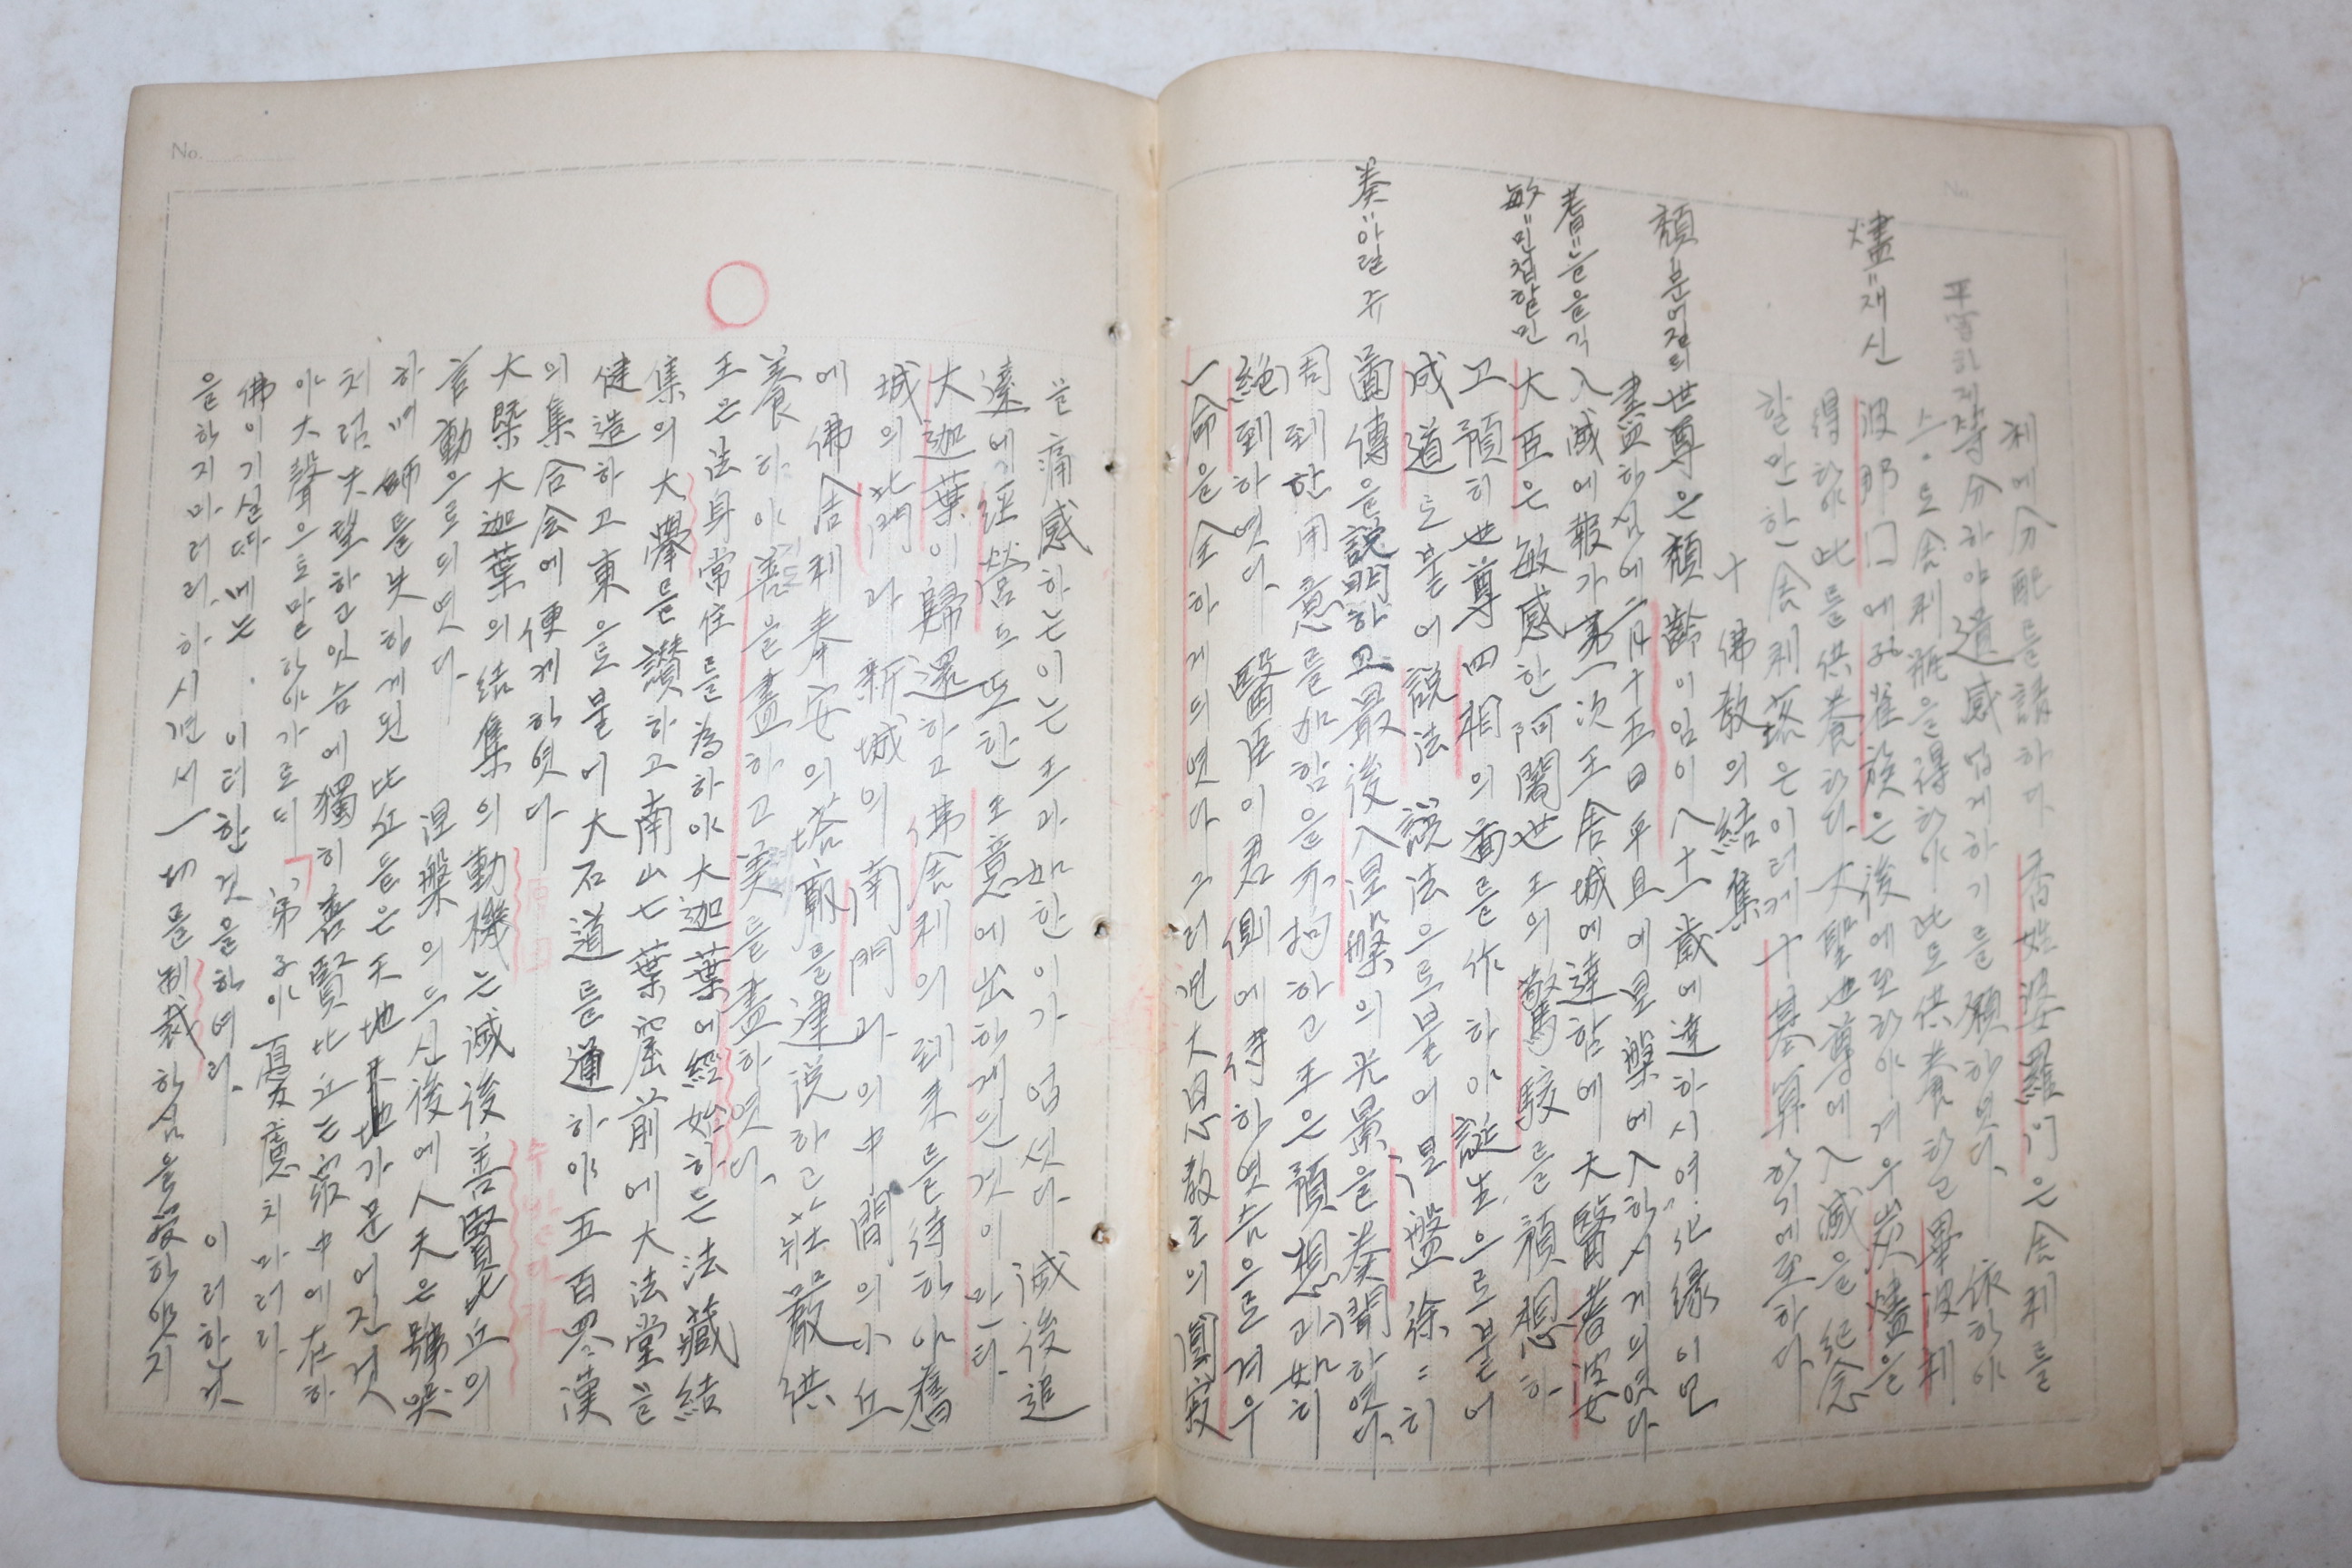 No.
平等하게
燼=재신
頹 문어질퇴
耆=늙을기
敏=민첩할민
奏=아뢸주
利에分配를請하다. 香姓婆羅門은舍利를
等分하야遺感업게하기를願하엿다. 依하야
스々로舍利甁을得하야此도供養하고畢波利
波那□에孔雀族은後에至하야겨우炭燼을
得하야此를供養하다. 大聖世尊에入滅을紀念
할만한舍利塔은이터케十基算하기에至하다.
十 佛敎의結集
世尊은頹齡이임이八十一歲에達하시여化緣이만
盡하심에二月十五日平旦에涅槃에入하시게의엿다
入滅에報가第一次王舍城에達함에 天醫耆婆
大臣은敏感한阿闍世王의驚駭를預想하
고預히世尊四相의畵를作하야誕生으로붙어
成道로붙어說法 說法으로붙의涅盤徐々히
畵傳을說明하고最後入涅槃의光景을奏聞하엿다.
周到한用意를加함을不拘하고王은預想과如히
絶到하엿다. 醫臣이君側에待하엿슴으로겨우
一命을全하게의엿다 그러면大恩敎主의圓寂
No.
을痛感하는이는王과如한이가업섯다. 滅後追
遠에經營도또한王意에出하게된것이만타.
大迦葉이歸還하고佛舍利의到來를待하야舊
城의北門과 新城의南門과의中間의小丘
에佛舍利奉安의塔廟를建設하고壯嚴供
養하야善을盡하고美를盡하엿다.
王은法身常住를爲하야大迦葉에經始하는法藏結
集의大擧를讚하고南山七葉窟前에大法堂을
健造하고東으로붙에大石道를通하야五百羅漢
의集合会에便케하엿다.
大槩大迦葉의結集의動機는滅後善賢比丘의
言動으로의엿다. 涅槃의의신後에人天은號哭
하며師를失하게된比丘들은天地가문어진것
처럼失望하고잇슴에獨히善賢比丘는衆中에在하
야大聲으로말하야가로되「弟子야憂慮치마러라
佛이기실때에는. 이터한것을하여라. 이러하것
을하지마러라. 하시면서一切를制裁하심을受하얏지